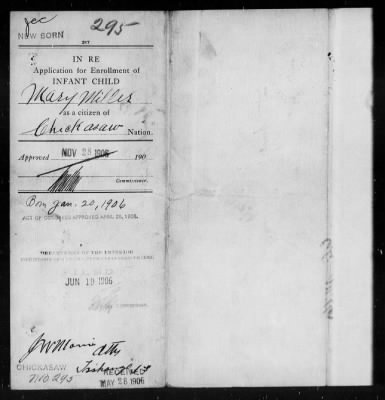 NEW BORN
295
IN RE
Application for Enrollment of
INFANT CHILD
Mary Miller
as a citizen of
Chickasaw Nation.
Approved NOV 28 1906 190
Commissioner.
Born Jan. 20, 1906
ACT OF CONGRESS APPROVED APRIL 26, 1906.
DEPARTMENT OF THE INTERIOR
FILED
JUN 19 1906
Atty
CHICKASAW
RECEIVED
No 295
MAY 28 1906